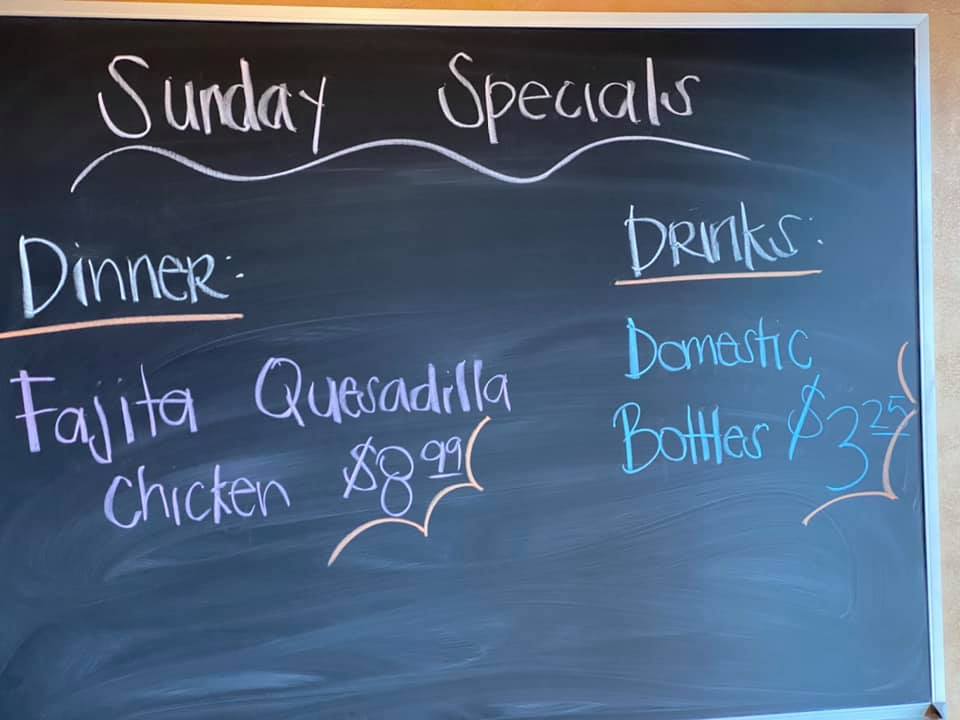 Sunday Specials
Dinner:
Fajita Quesadilla
Chicken $8.99
Drinks:
Domestic
Bottles $3.25